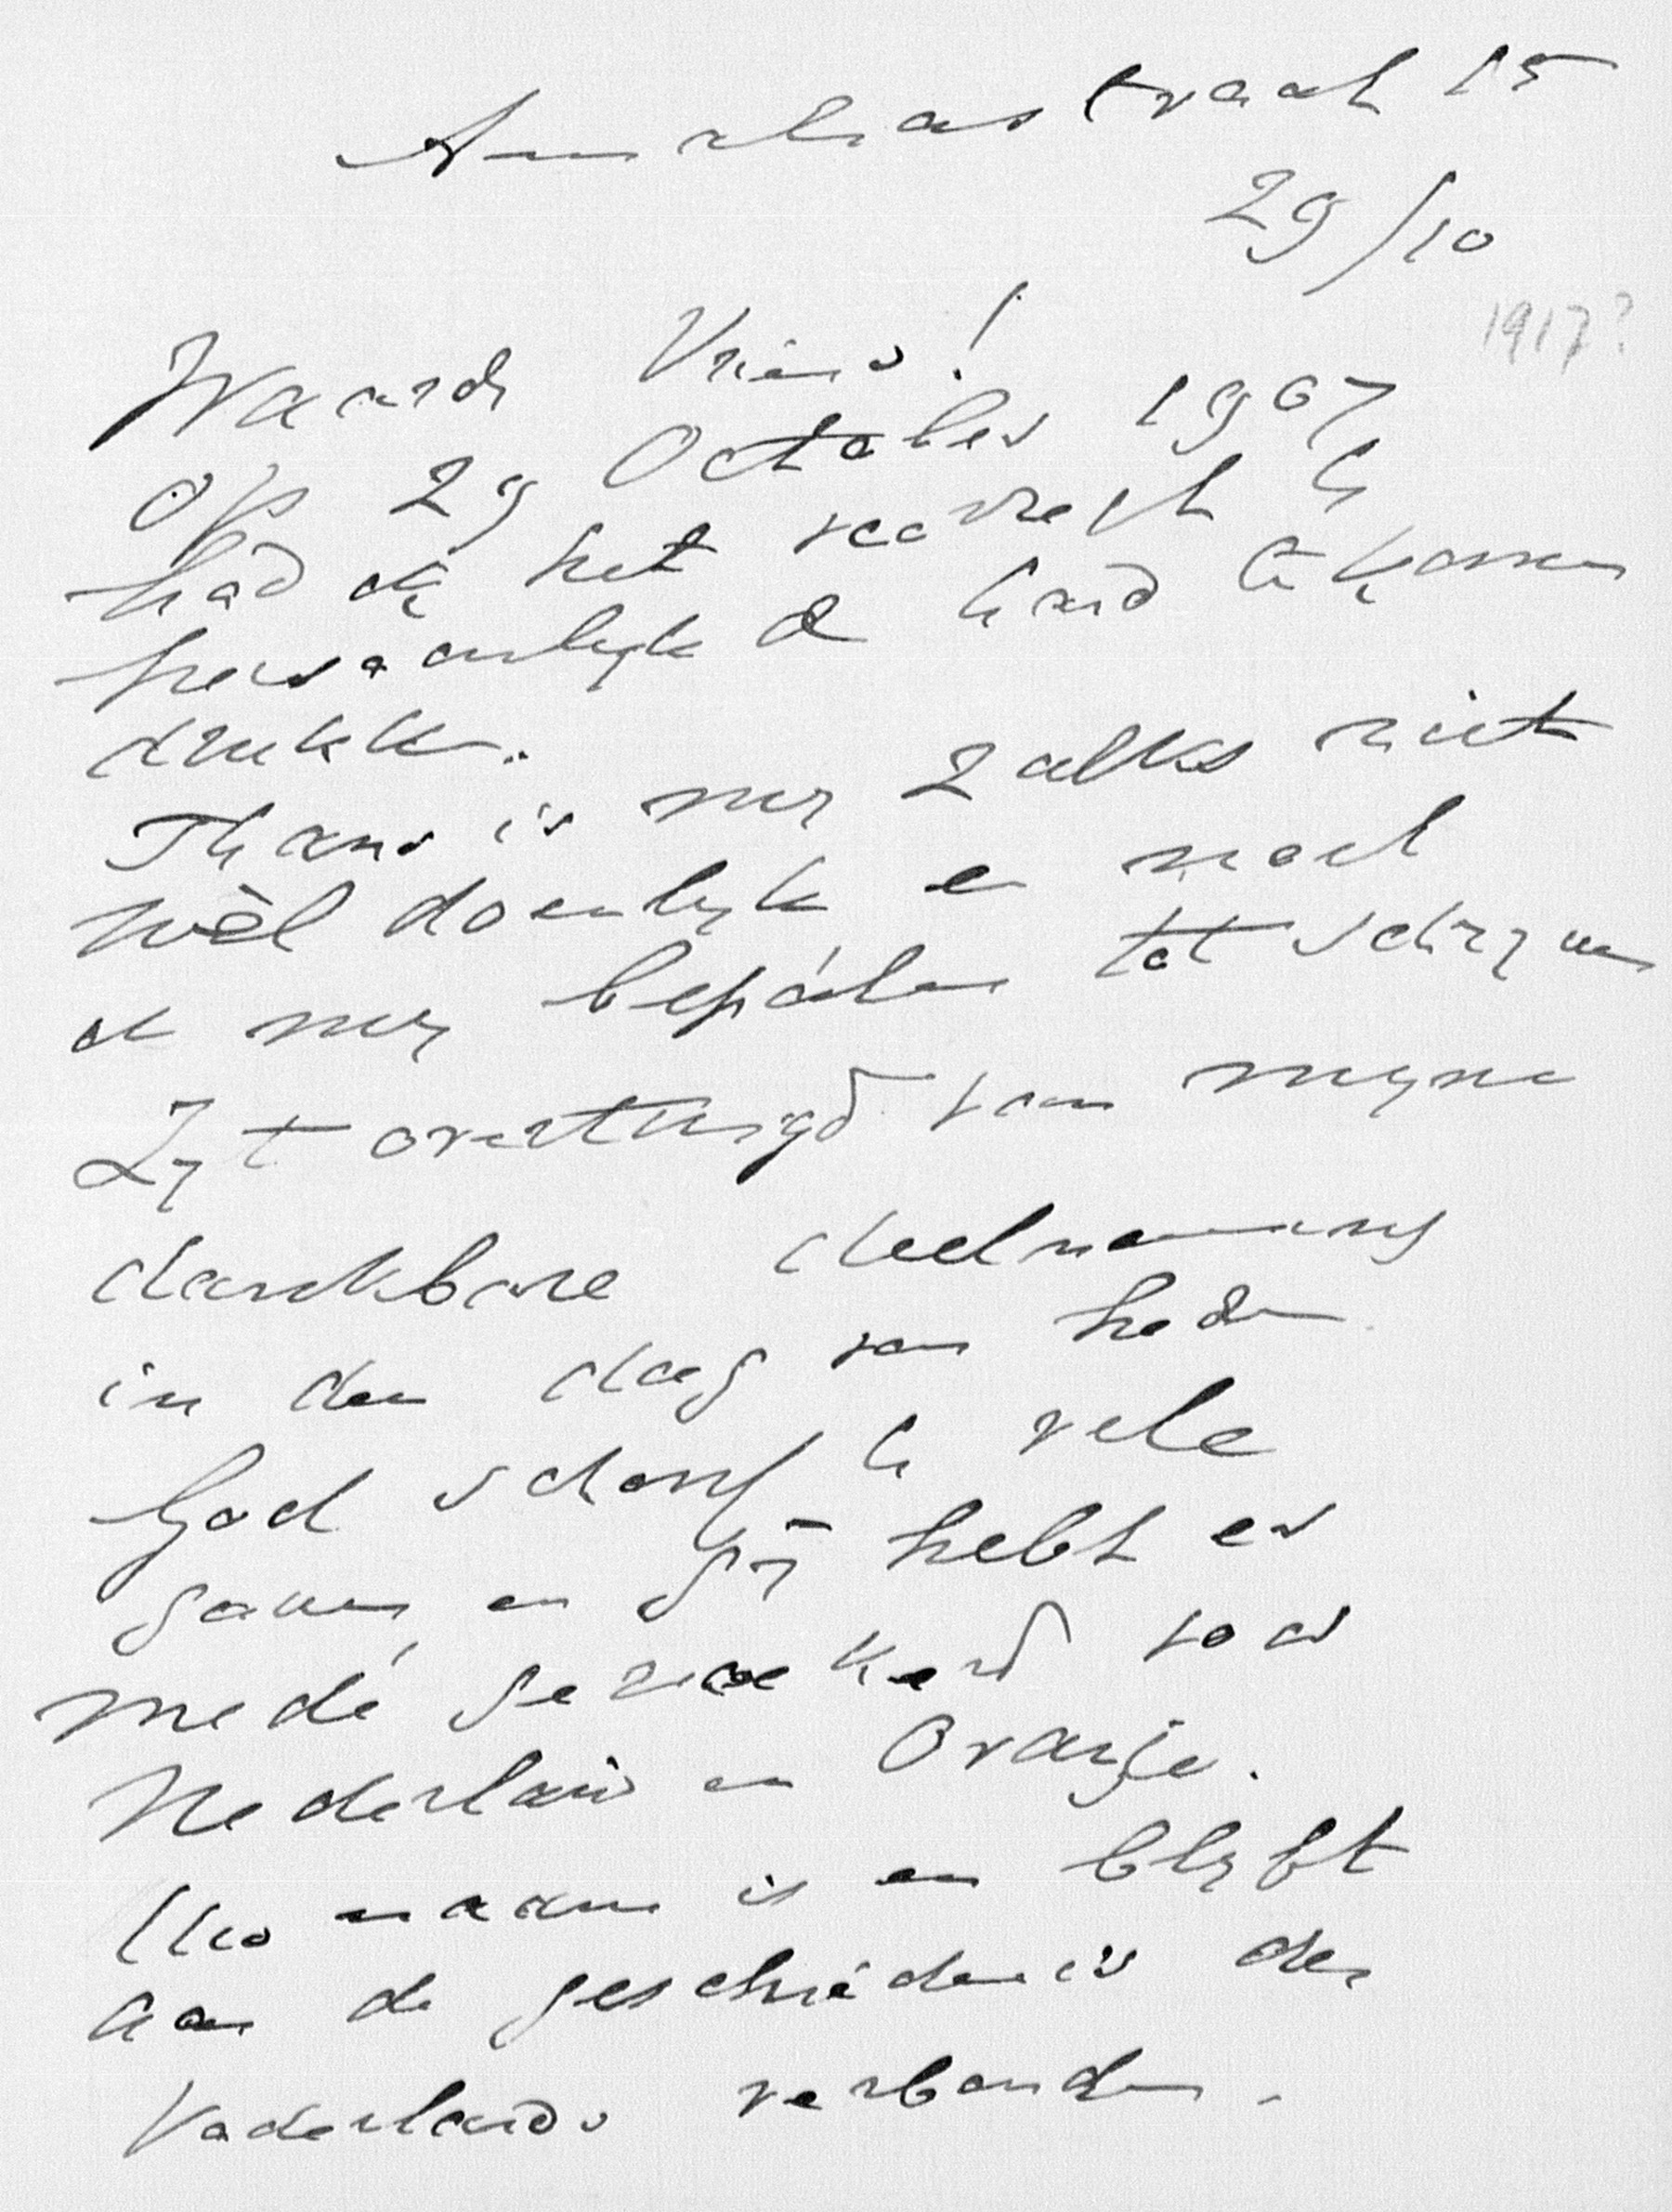 Ameliastraat 15
29/10
1917?
Waarde Vriend!
Op 29 October 1907
had ik het voorrecht U
persoonlyk de hand te komen
drukken.
Thans is my zulks niet
wèl doenlyk en moet
ik my bepalen tot schryven
Zyt overtuigd van myne
dankbare deelneming
in den dag van heden.
God schonk U vele
gaven en Gy hebt er
mede gewoekerd voor
Nederland en Oranje.
Uw naam is en blyft
aan de geschiedenis des
Vaderlands verbonden.